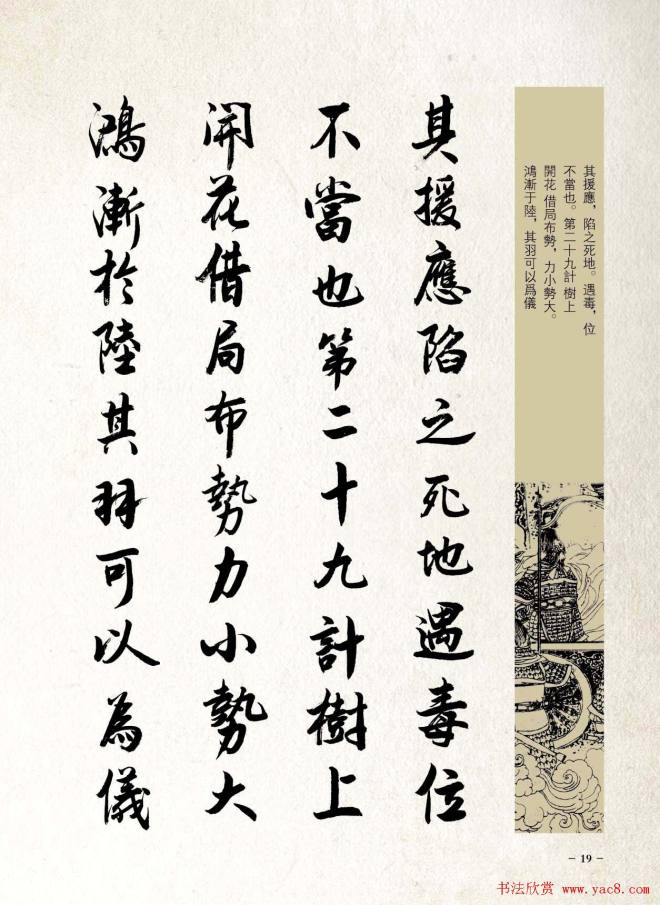 其援應陷之死地遇毒位
不當也第二十九計樹上
開花借局布勢力小勢大
鴻漸於陸其羽可以為儀
其援應，陷之死地。遇毒，位
不當也。第二十九計 樹上
開花 借局布勢，力小勢大。
鴻漸于陸，其羽可以爲儀
- 19 -
书法欣赏 www.yac8.com